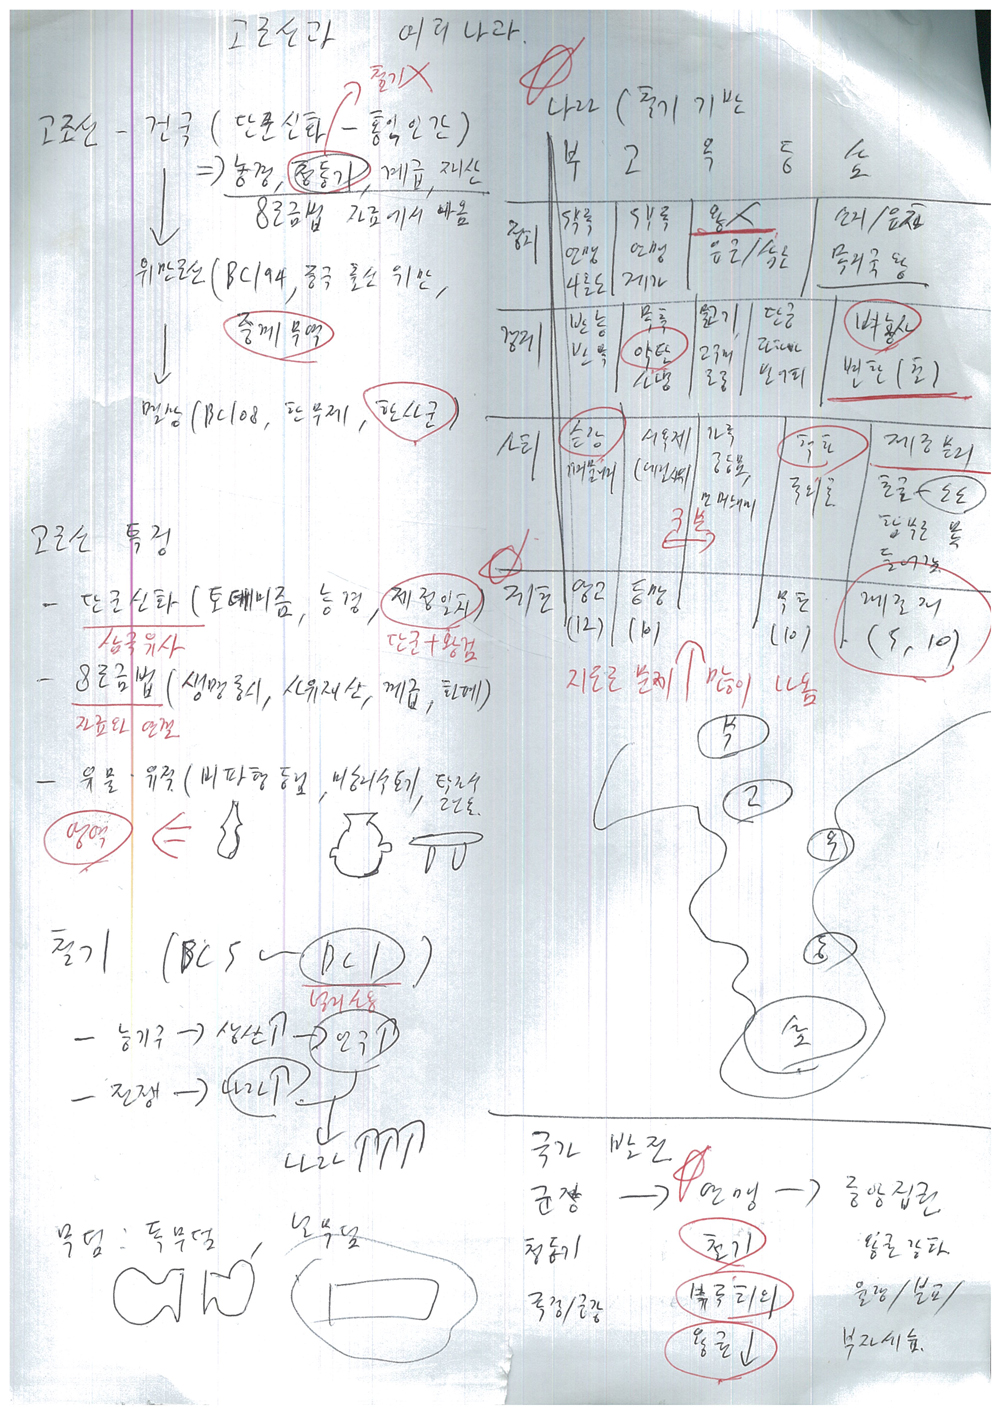 고조선과 여러나라.
철기X
고조선 - 건국 (단군신화 - 홍익인간)
=> 농경, 청동기, 계급, 재산
8조금법 자료에서 나옴
위만조선 (BC194, 중국 출신 위만,
중계무역
멸망 (BC108, 한무제, 한사군)
고조선 특징
- 단군신화 (토테미즘, 농경, 제정일치)
삼국유사 단군+왕검
- 8조금법 (생명중시, 사유재산, 계급, 화폐)
자료와 연결
- 유물·유적 (비파형동검, 미송리식토기, 탁자식
고인돌.
영역 <=
철기 (BC5 ~ BC1)
널리 사용
- 농기구 → 생산↑ → 인구↑
- 전쟁 → 나라↑
나라↑↑↑
무덤 : 독무덤, 널무덤
나라 (철기 기반
부 고 옥 동 삼
정치
5부족 5부족 왕X 신지/읍차
연맹 연맹 읍군/삼로 목지국 왕
사출도 제가
경제
반농 목축 물고기, 단궁 벼농사
반목 약탈 과하마 변한(철)
반어피
사회
순장 서옥제 가족 책화 제정분리
(데릴사위 공동묘, 족외혼 천군-소도
민며느리
구분
제천 영고 동맹 무천 계절제
(12) (10) (10) (5, 10)
지도로 출제 많이 나옴
부
고
옥
동
삼
국가 발전
군장 → 연맹 → 중앙집권
청동기 철기 왕권강화
족장/군장 부족회의 율령/불교/
왕권↓ 부자세습.